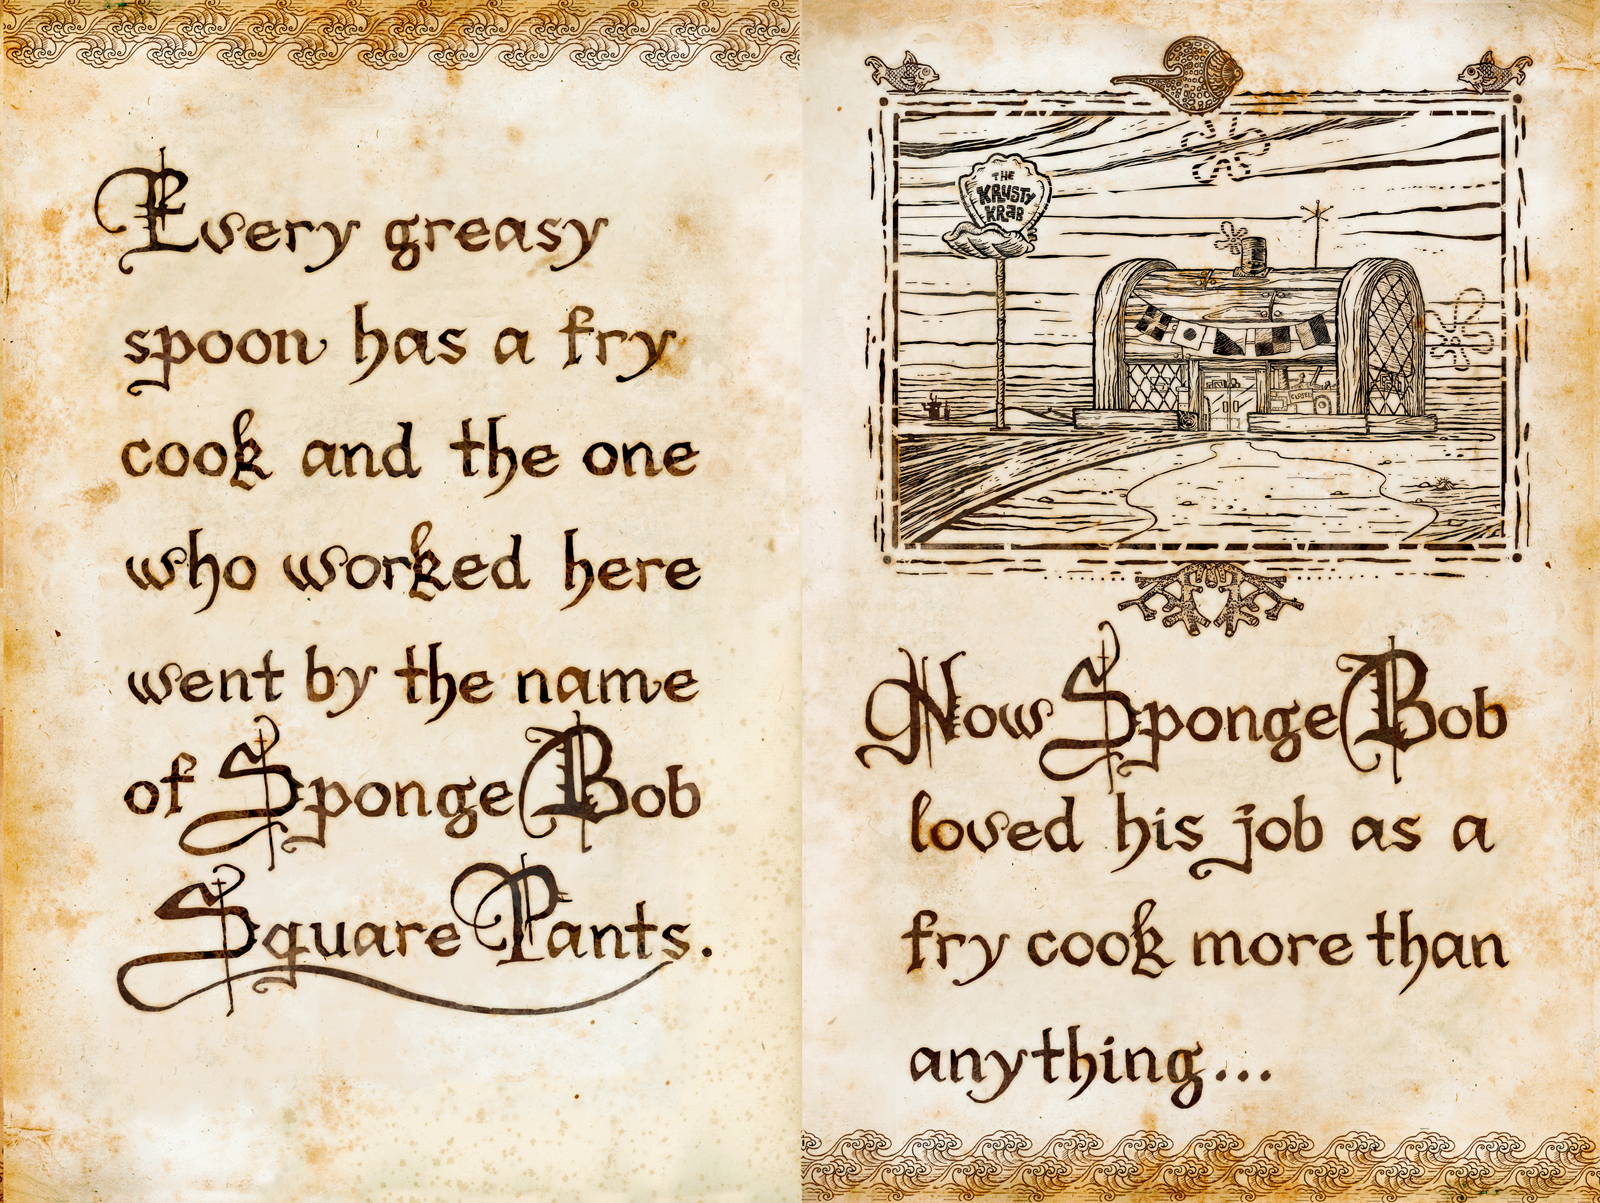 Every greasy
spoon has a fry
cook and the one
who worked here
went by the name
of SpongeBob
SquarePants.
THE
KRUSTY
KRAB
CLOSED
Now SpongeBob
loved his job as a
fry cook more than
anything...